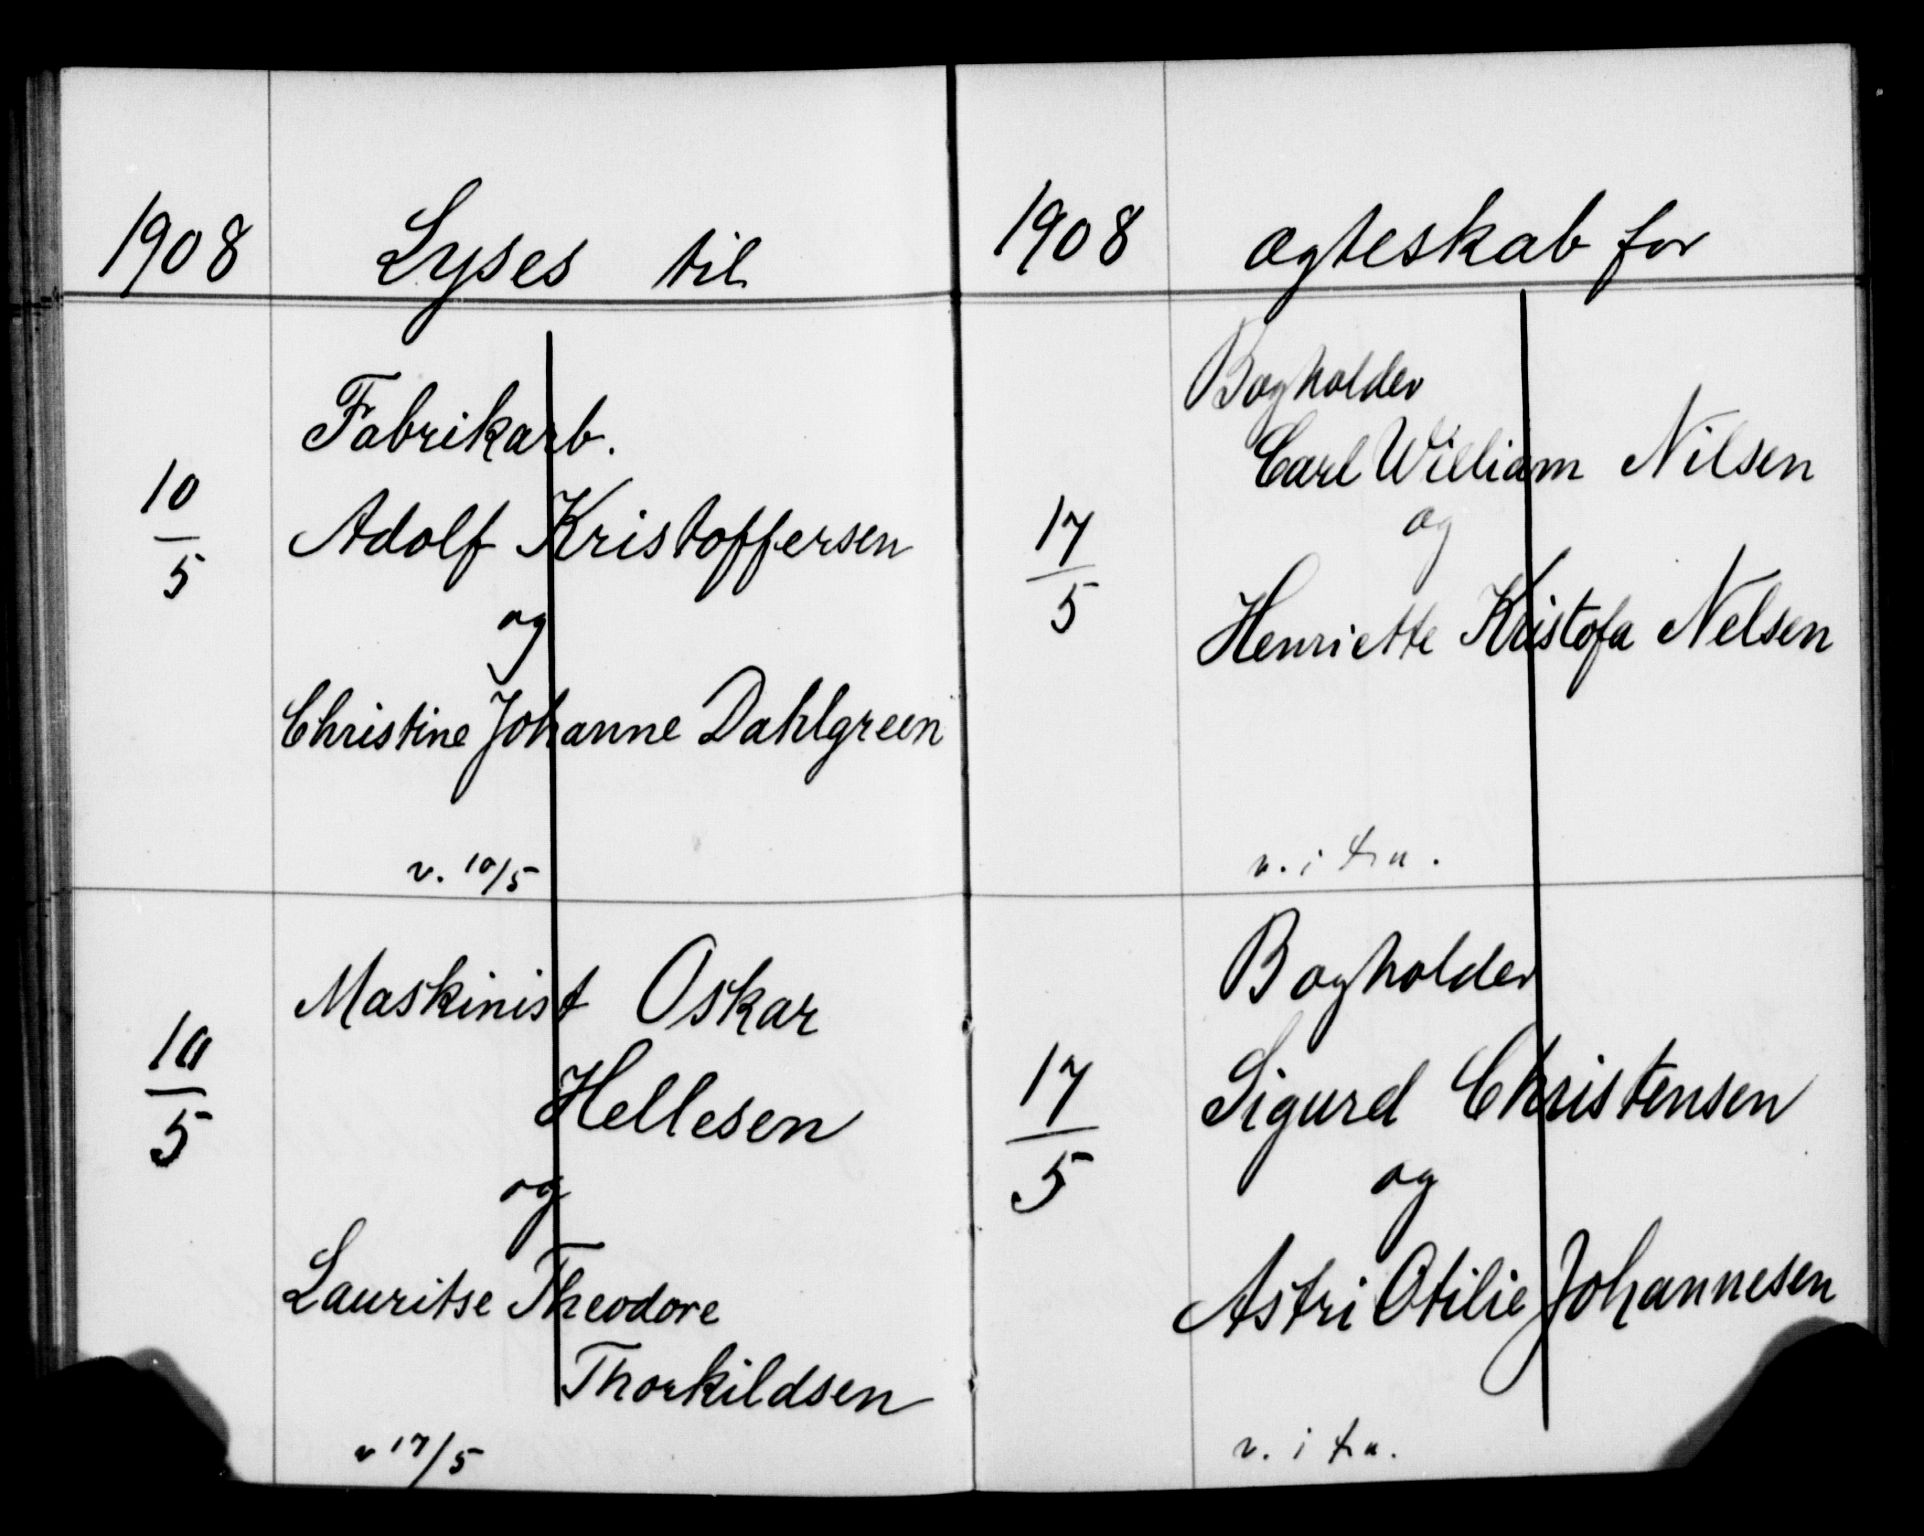 1908 Lyses til
Fabrikarb.
10/5 Adolf Kristoffersen
og
Christine Johanne Dahlgreen
v. 10/5
Maskinist Oskar
10/5 Hellesen
og
Lauritse Theodore
Thorkildsen
v 17/5
1908 ægteskab for
Bogholder
Carl William Nilsen
17/5 og
Henriette Kristofa Nelsen
v. i
Bogholder
17/5 Sigurd Christensen
og
Astri Otilie Johannesen
v. i